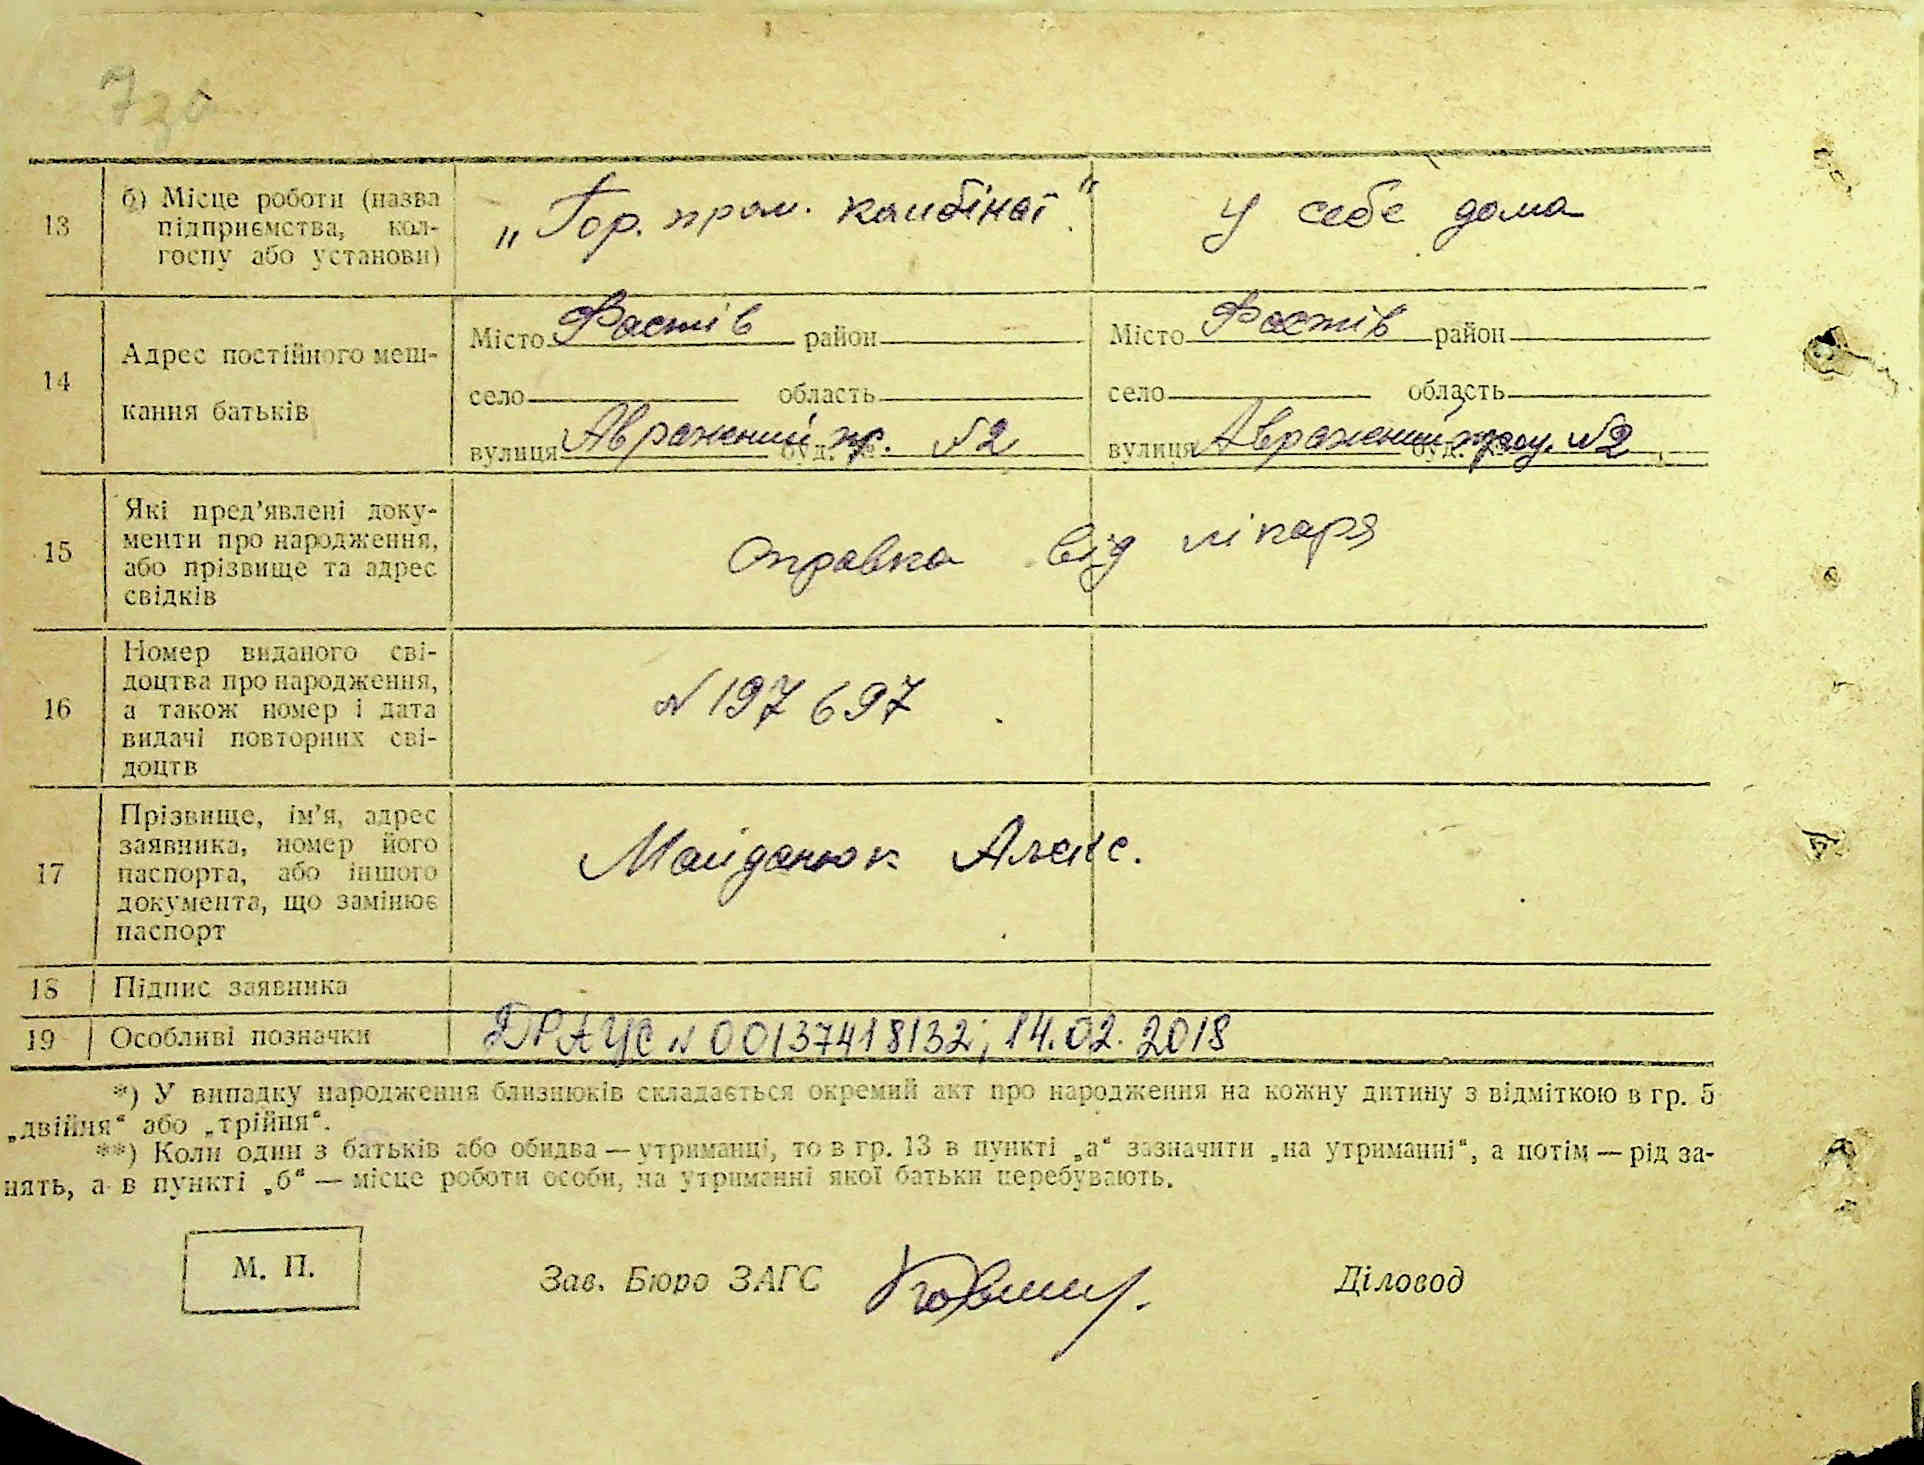 7зв
13
б) Місце роботи (назва
підприємства, кол-
госпу або установи)
„Гор. пром. комбінат."
У себе дома
14
Адрес постійного меш-
кання батьків
Місто Фастів район
село область
вулиця Авражний пр. буд. № №2
Місто Фастів район
село область
вулиця Авражений буд. №2
15
Які пред’явлені доку-
менти про народження,
або прізвище та адрес
свідків
Справка від лікаря
16
Номер виданого сві-
доцтва про народження,
а також номер і дата
видачі повторних сві-
доцтв
№197697
17
Прізвище, ім’я, адрес
заявника, номер його
паспорта, або іншого
документа, що замінює
паспорт
Майданюк Алекс.
18
Підпис заявника
19
Особливі позначки
ДРАЦС № 00137418132; 14.02.2018
*) У випадку народження близнюків складається окремий акт про народження на кожну дитину з відміткою в гр. 5
„двійня“ або „трійня“.
**) Коли один з батьків або обидва — утриманці, то в гр. 13 в пункті „а“ зазначити „на утриманні“, а потім — рід за-
нять, а в пункті „б“ — місце роботи особи, на утриманні якої батьки перебувають.
М. П.
Зав. Бюро ЗАГС
Діловод